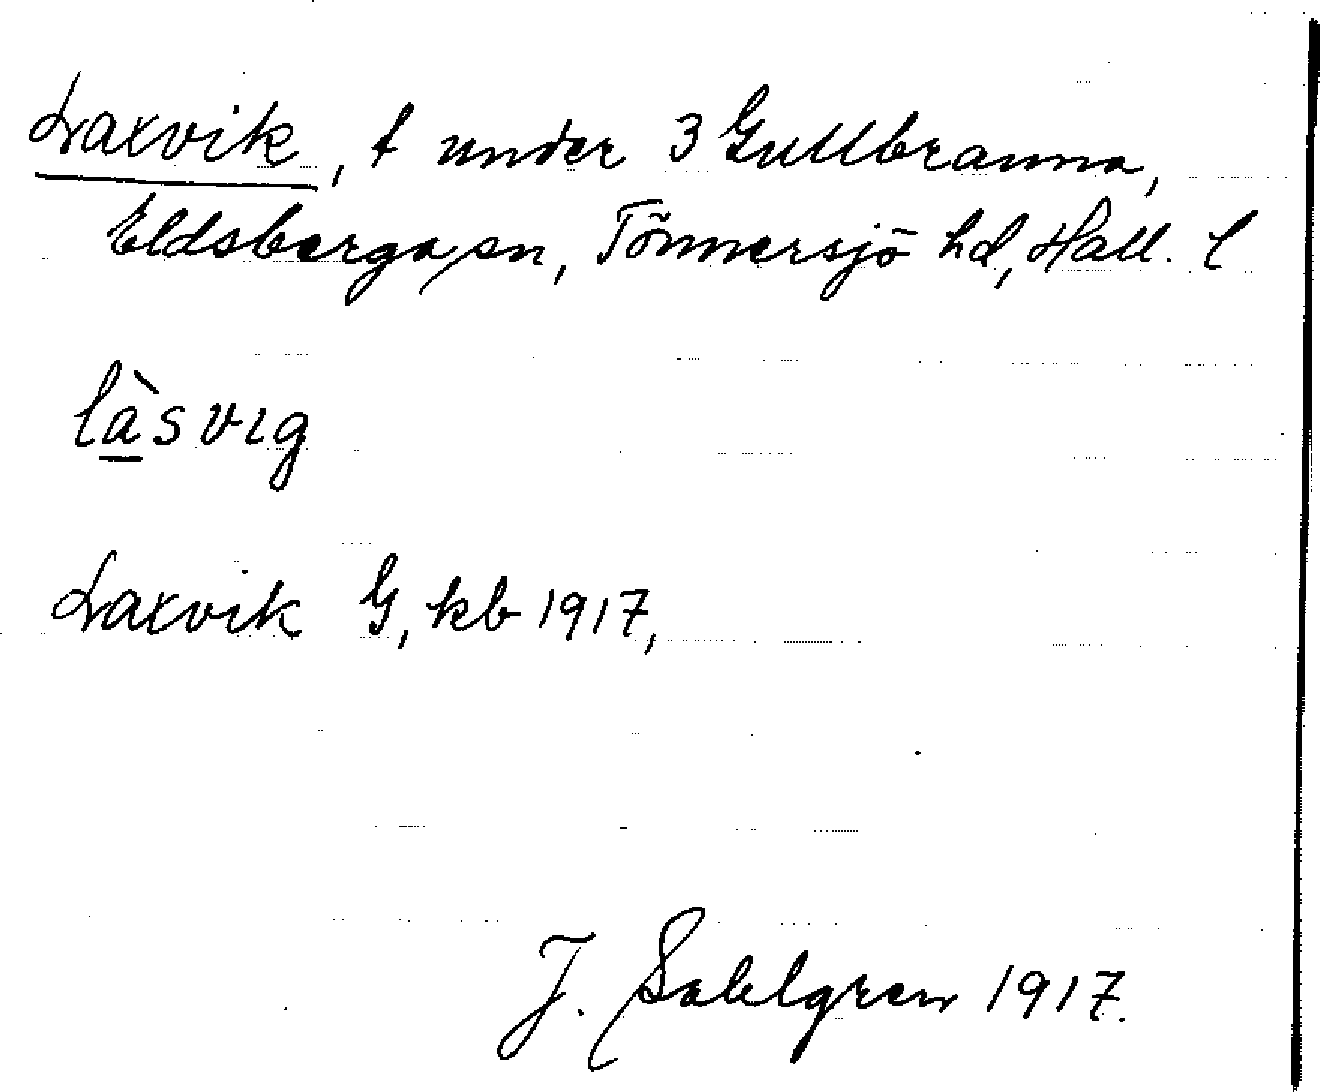 Laxvik, t under 3 Gullbranna,
Eldsberga sn, Tönnersjö hd, Hall. l
làsvıg
Laxvik G, kb 1917,
J. Sahlgren 1917.